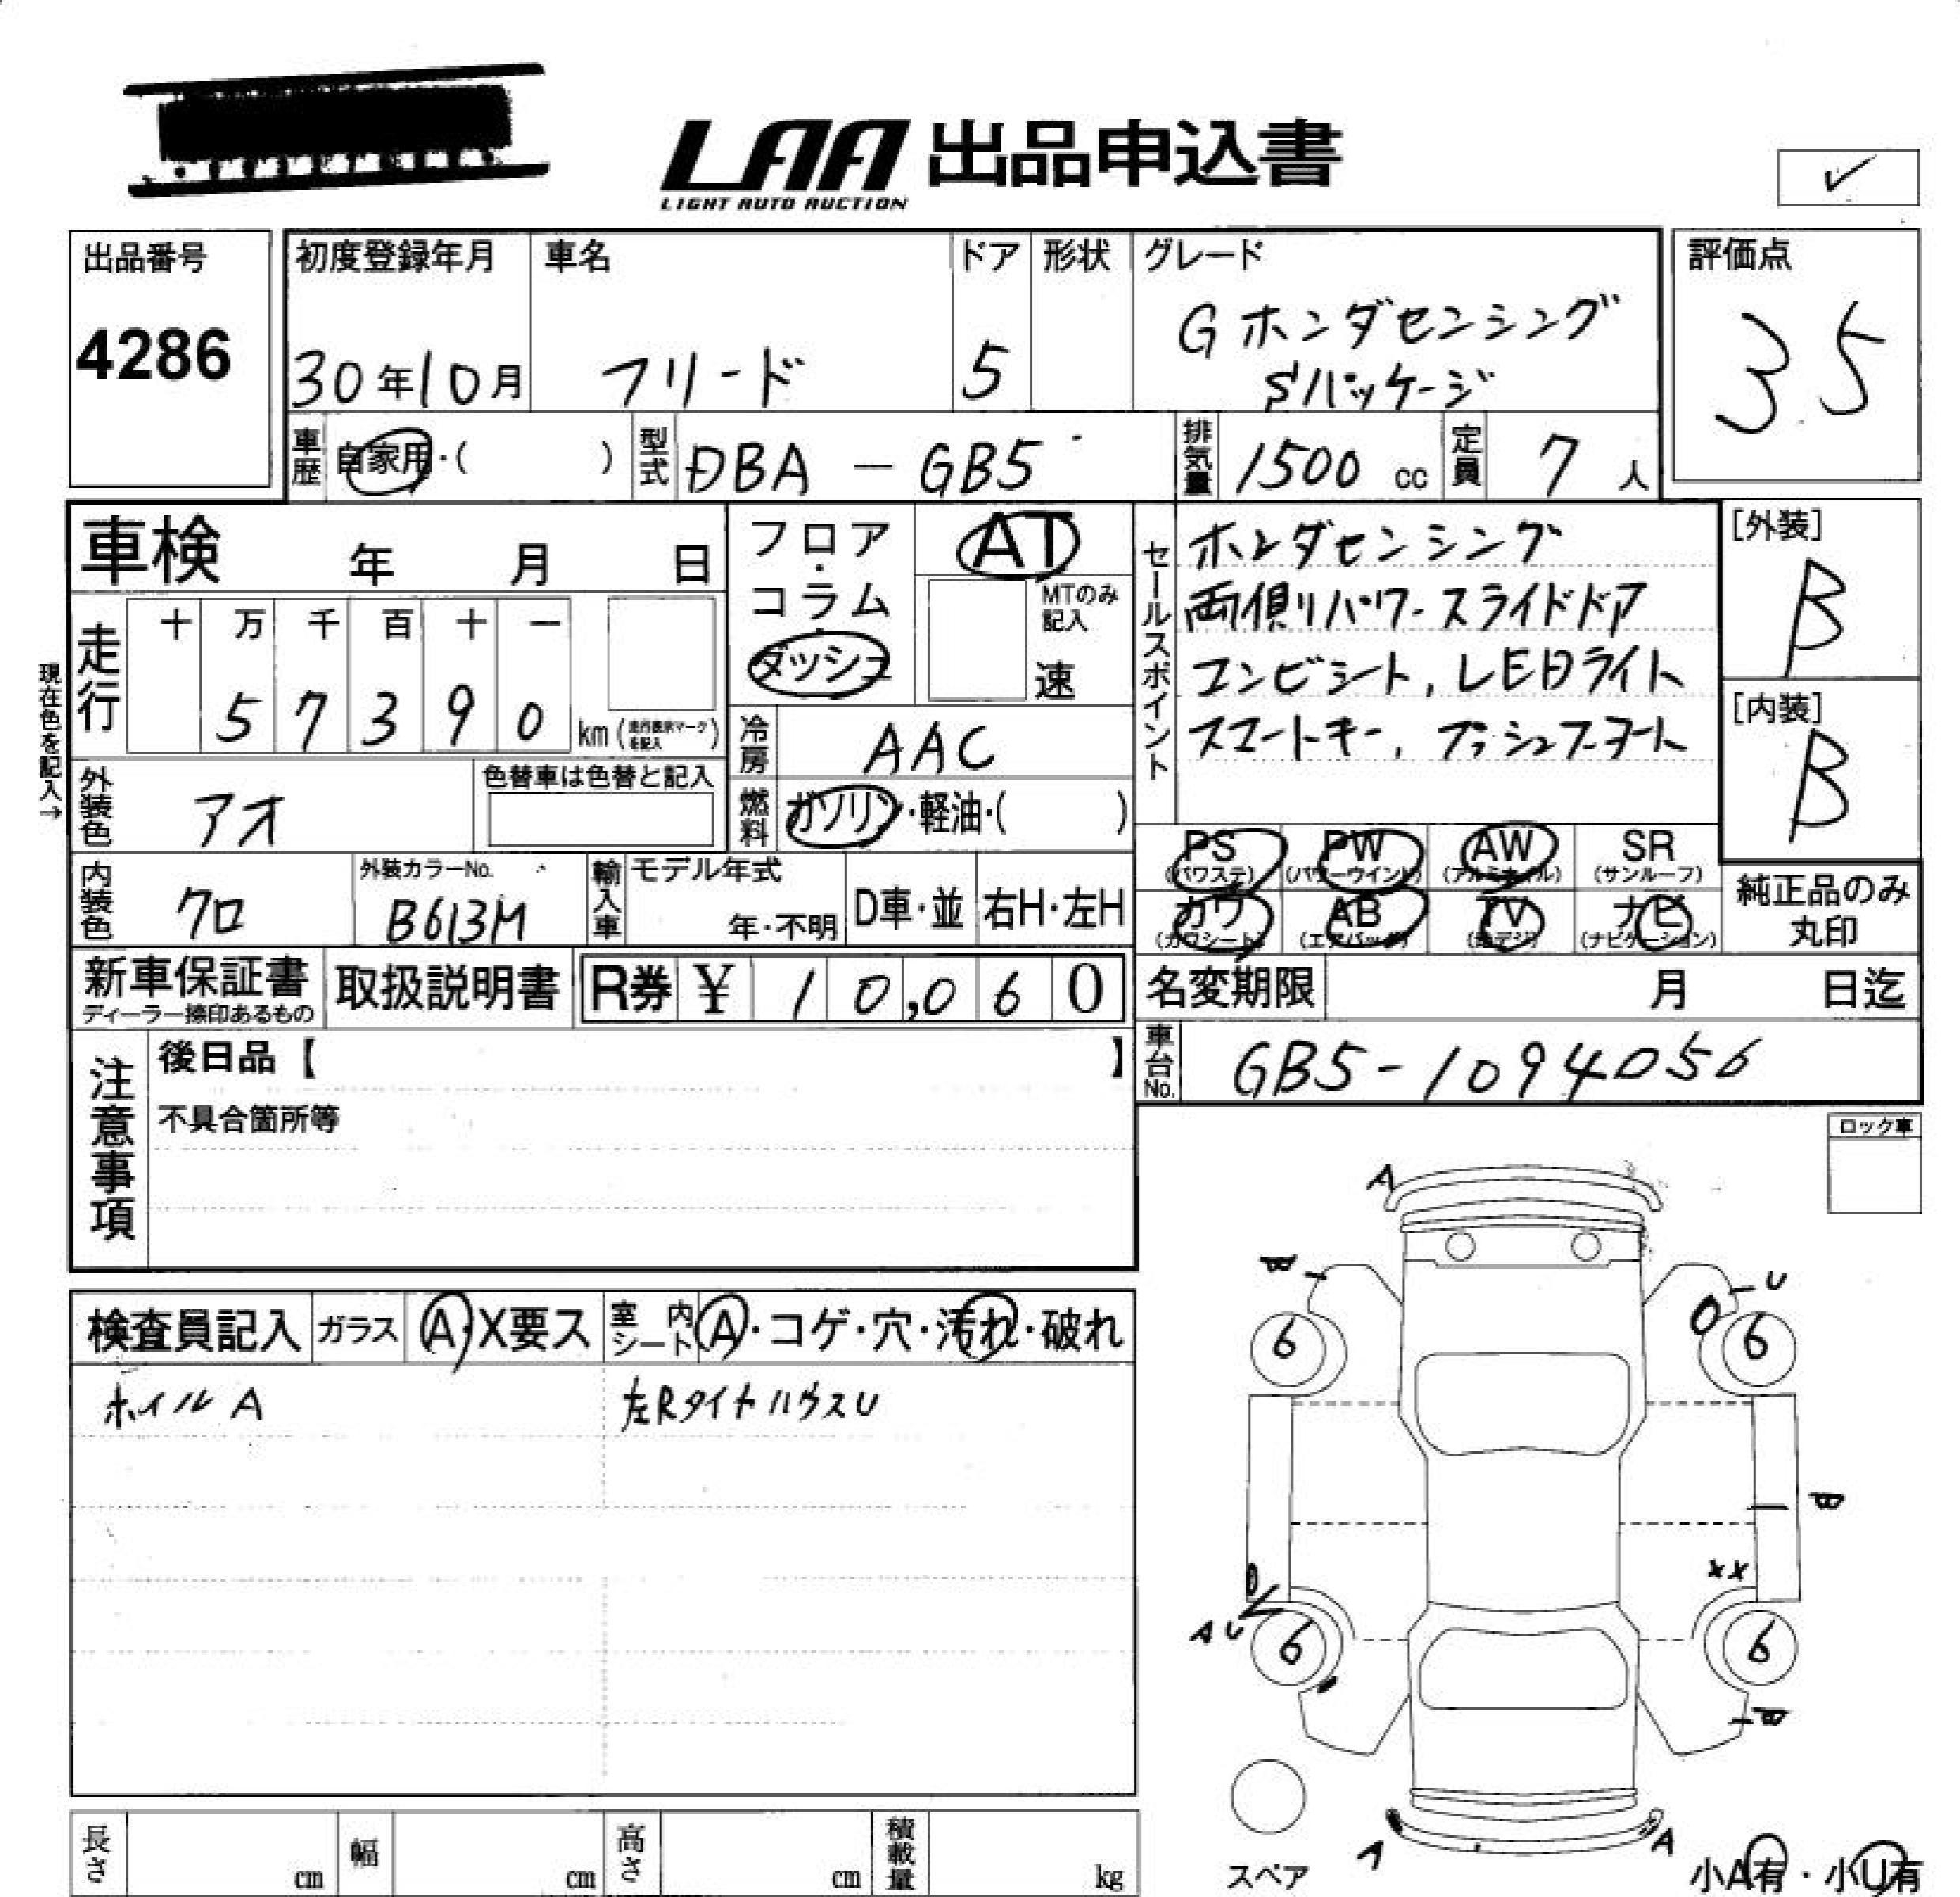 LAA 出品申込書
LIGHT AUTO AUCTION
✓
出品番号
4286
初度登録年月
30年10月
車名
フリード
ドア
5
形状
グレード
G ホンダセンシング
Sパッケージ
評価点
3.5
車歴
自家用・( )
型式
DBA - GB5
排気量
1500 cc
定員
7 人
車検 年 月 日
走行
十 万 千 百 十 一
5 7 3 9 0 km (走行表示マークを記入)
現在色を記入→
フロア・コラム
ダッシュ
AT
MTのみ記入
速
冷房
AAC
燃料
ガソリン・軽油・( )
セールスポイント
ホンダセンシング
両側リパワースライドドア
コンビシート, LEDライト
スマートキー, プッシュスタート
[外装]
B
[内装]
B
外装色
アオ
色替車は色替と記入
内装色
クロ
外装カラーNo.
B613M
輸入車
モデル年式
年・不明
D車・並
右H・左H
PS (パワステ)
PW (パワーウインド)
AW (アルミホイル)
SR (サンルーフ)
カワ (カワシート)
AB (エアバッグ)
TV (地デジ)
ナビ (ナビゲーション)
純正品のみ
丸印
新車保証書
ディーラー捺印あるもの
取扱説明書
R券 ¥ 10,060
名変期限 月 日迄
車台No.
GB5-1094056
注意事項
後日品【 】
不具合箇所等
ロック車
検査員記入
ガラス
A・X要ス
室内シート
A・コゲ・穴・汚れ・破れ
ホイル A
左Rタイヤハウス U
A
B
U
6
6
B
XX
A U
6
6
B
A
スペア
小A有・小U有
長さ cm
幅 cm
高さ cm
積載量 kg